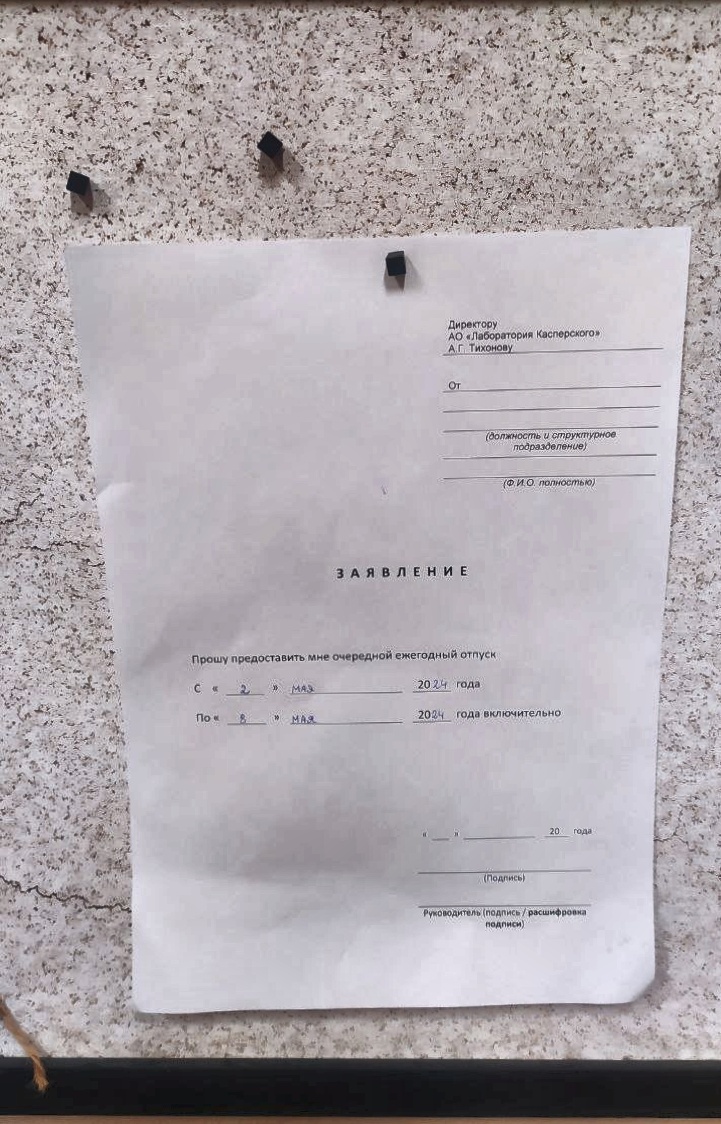 Директору
АО «Лаборатория Касперского»
А.Г. Тихонову
От
(должность и структурное
подразделение)
(Ф.И.О. полностью)
ЗАЯВЛЕНИЕ
Прошу предоставить мне очередной ежегодный отпуск
С « 2 » мая 2024 года
По « 8 » мая 2024 года включительно
« __ » ________ 20__ года
(Подпись)
Руководитель (подпись / расшифровка
подписи)